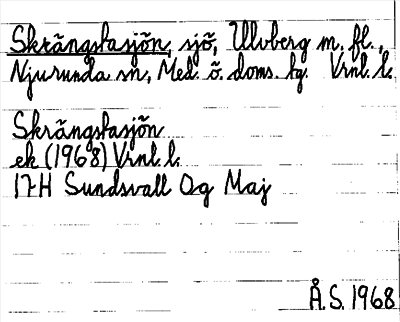 Skrängstasjön, sjö, Ulvberg m. fl.,
Njurunda sn, Med. ö. doms. tg. Vrnl. l.
Skrängstasjön
ek (1968) Vrnl. l.
17H Sundsvall Og Maj
Å.S. 1968